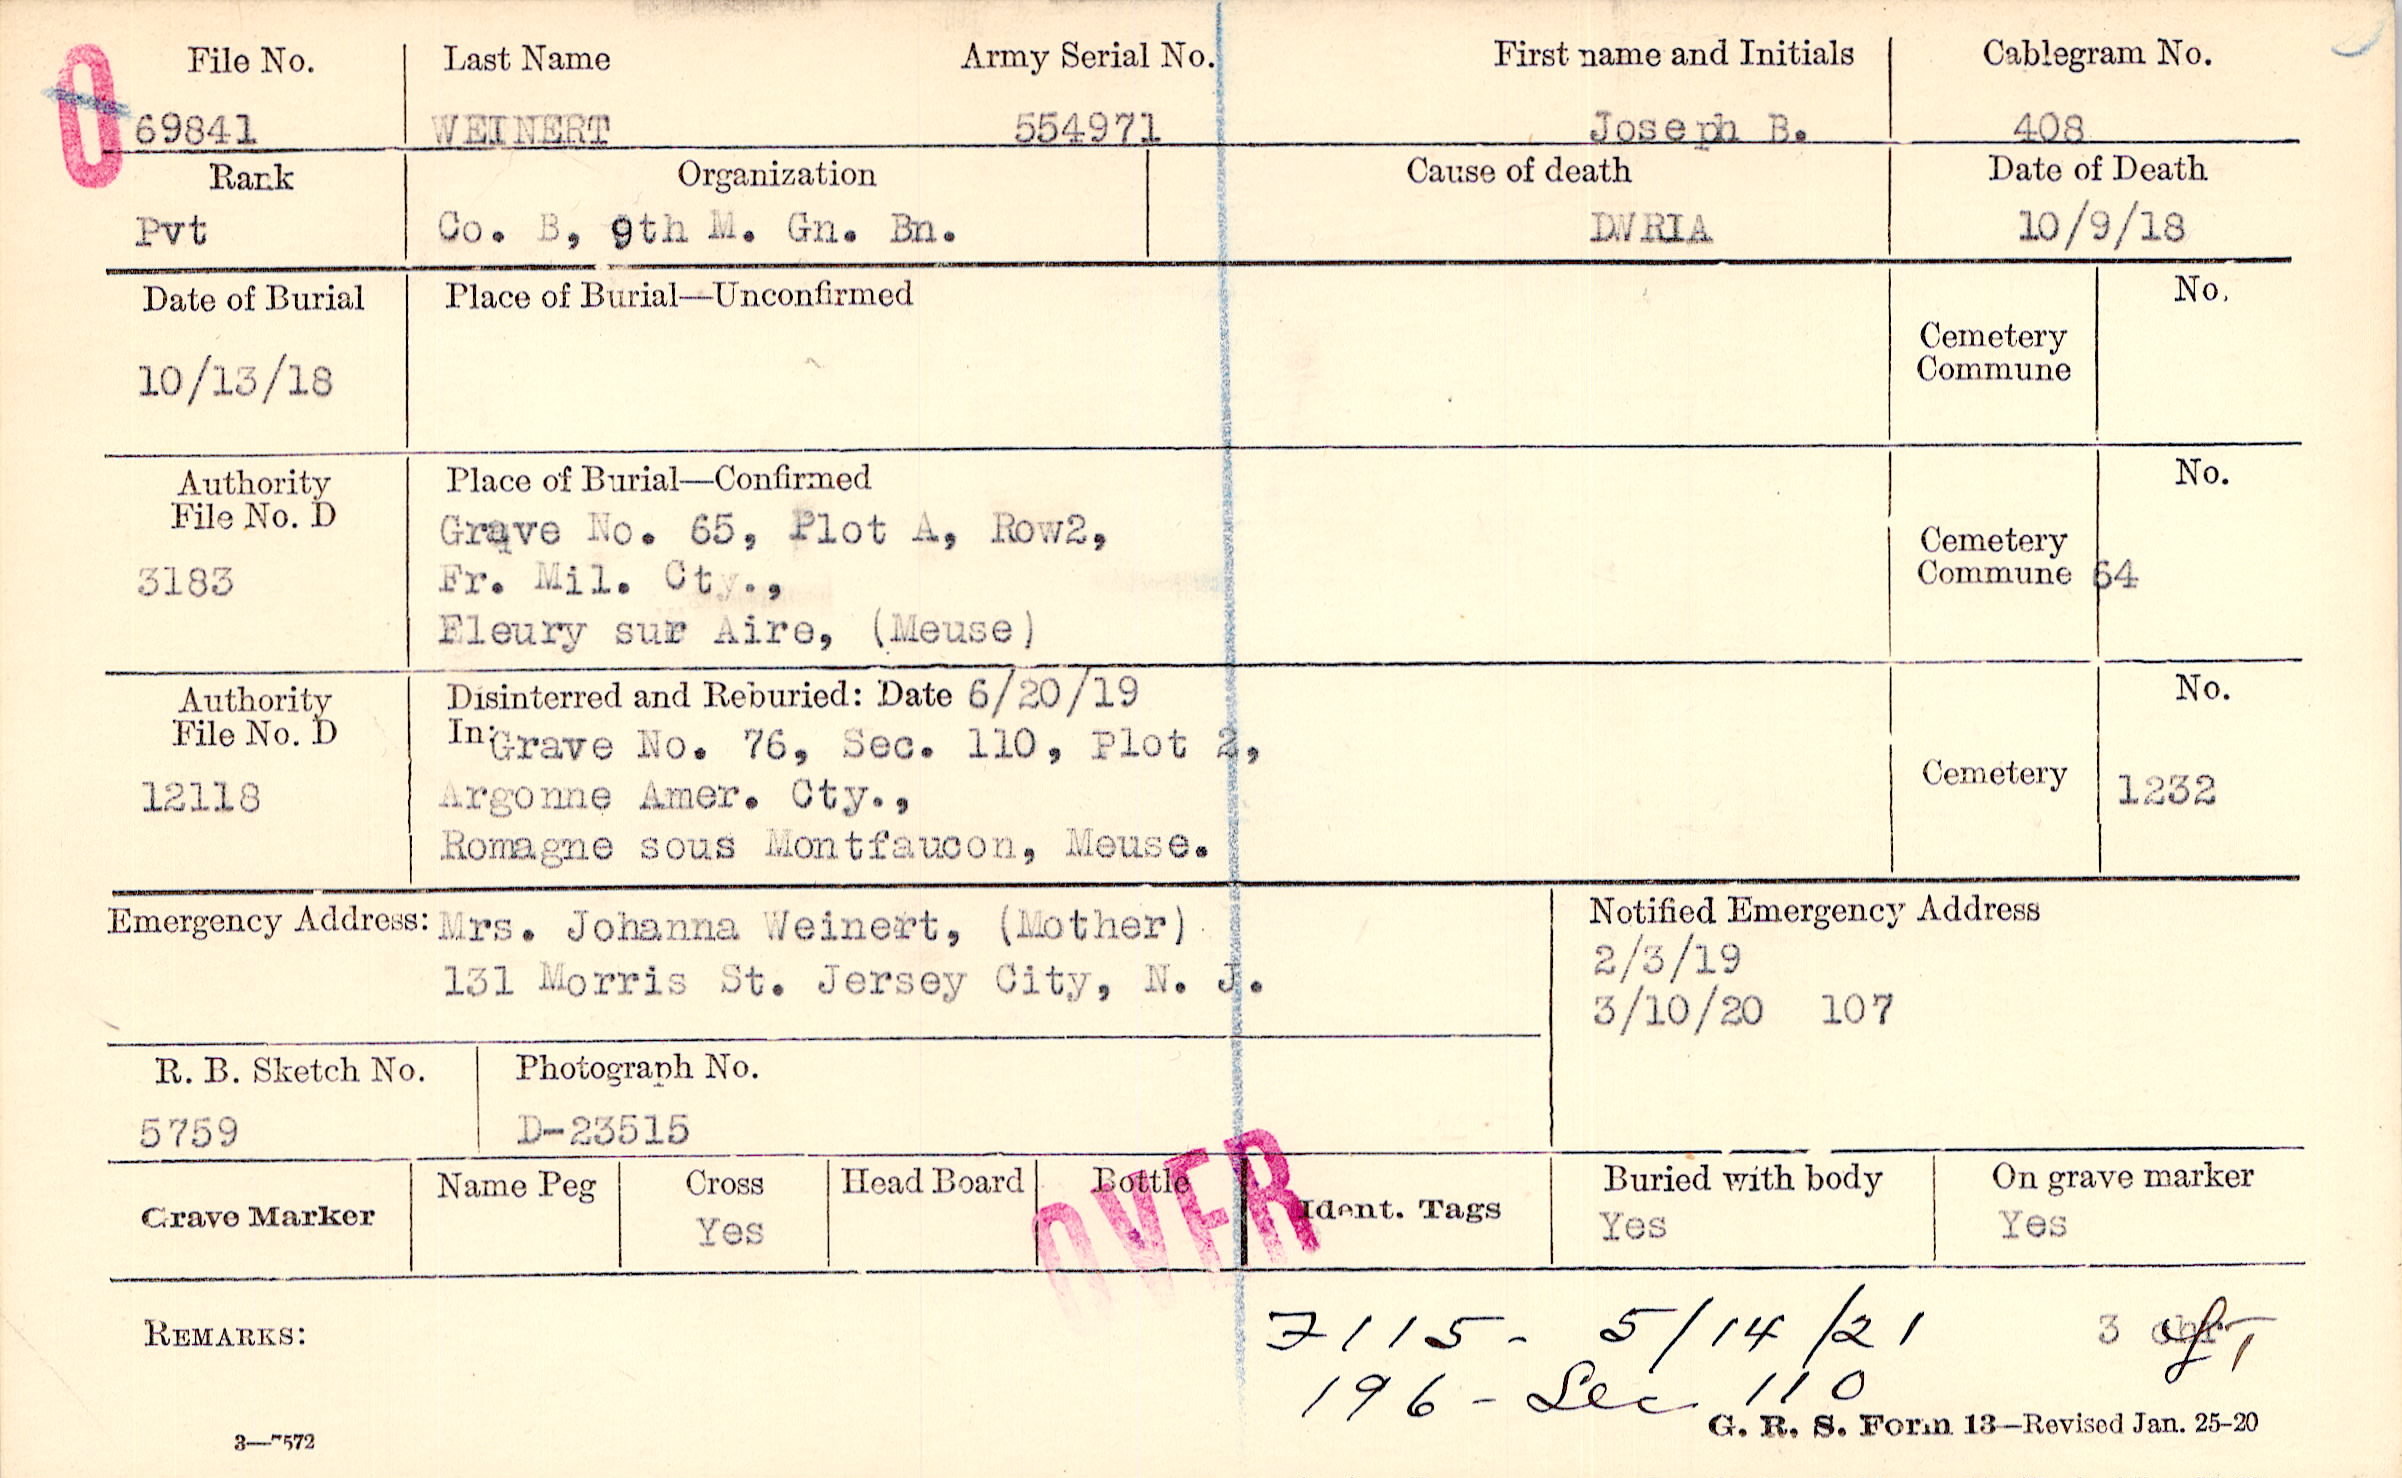 File No. Last Name Army Serial No. First name and Initials Cablegram No.
O
69841 WEINERT 554971 Joseph B. 408
Rank Organization Cause of death Date of Death
Pvt Co. B, 9th M. Gn. Bn. DWRIA 10/9/18
Date of Burial Place of Burial—Unconfirmed No.
Cemetery
Commune
10/13/18
Authority Place of Burial—Confirmed No.
File No. D Grave No. 65, Plot A, Row2,
Cemetery
3183 Fr. Mil. Cty., Commune 64
Fleury sur Aire, (Meuse)
Authority Disinterred and Reburied: Date 6/20/19 No.
File No. D In: Grave No. 76, Sec. 110, Plot 2,
Cemetery
12118 Argonne Amer. Cty., 1232
Romagne sous Montfaucon, Meuse.
Emergency Address: Mrs. Johanna Weinert, (Mother) Notified Emergency Address
2/3/19
131 Morris St. Jersey City, N. J.
3/10/20 107
R. B. Sketch No. Photograph No.
5759 D-23515
OVER
Name Peg Cross Head Board Bottle Buried with body On grave marker
Grave Marker Yes Ident. Tags Yes Yes
REMARKS: 7115 - 5/14/21 3
196 - Sec 110
3—7572 G. R. S. Form 13—Revised Jan. 25-20